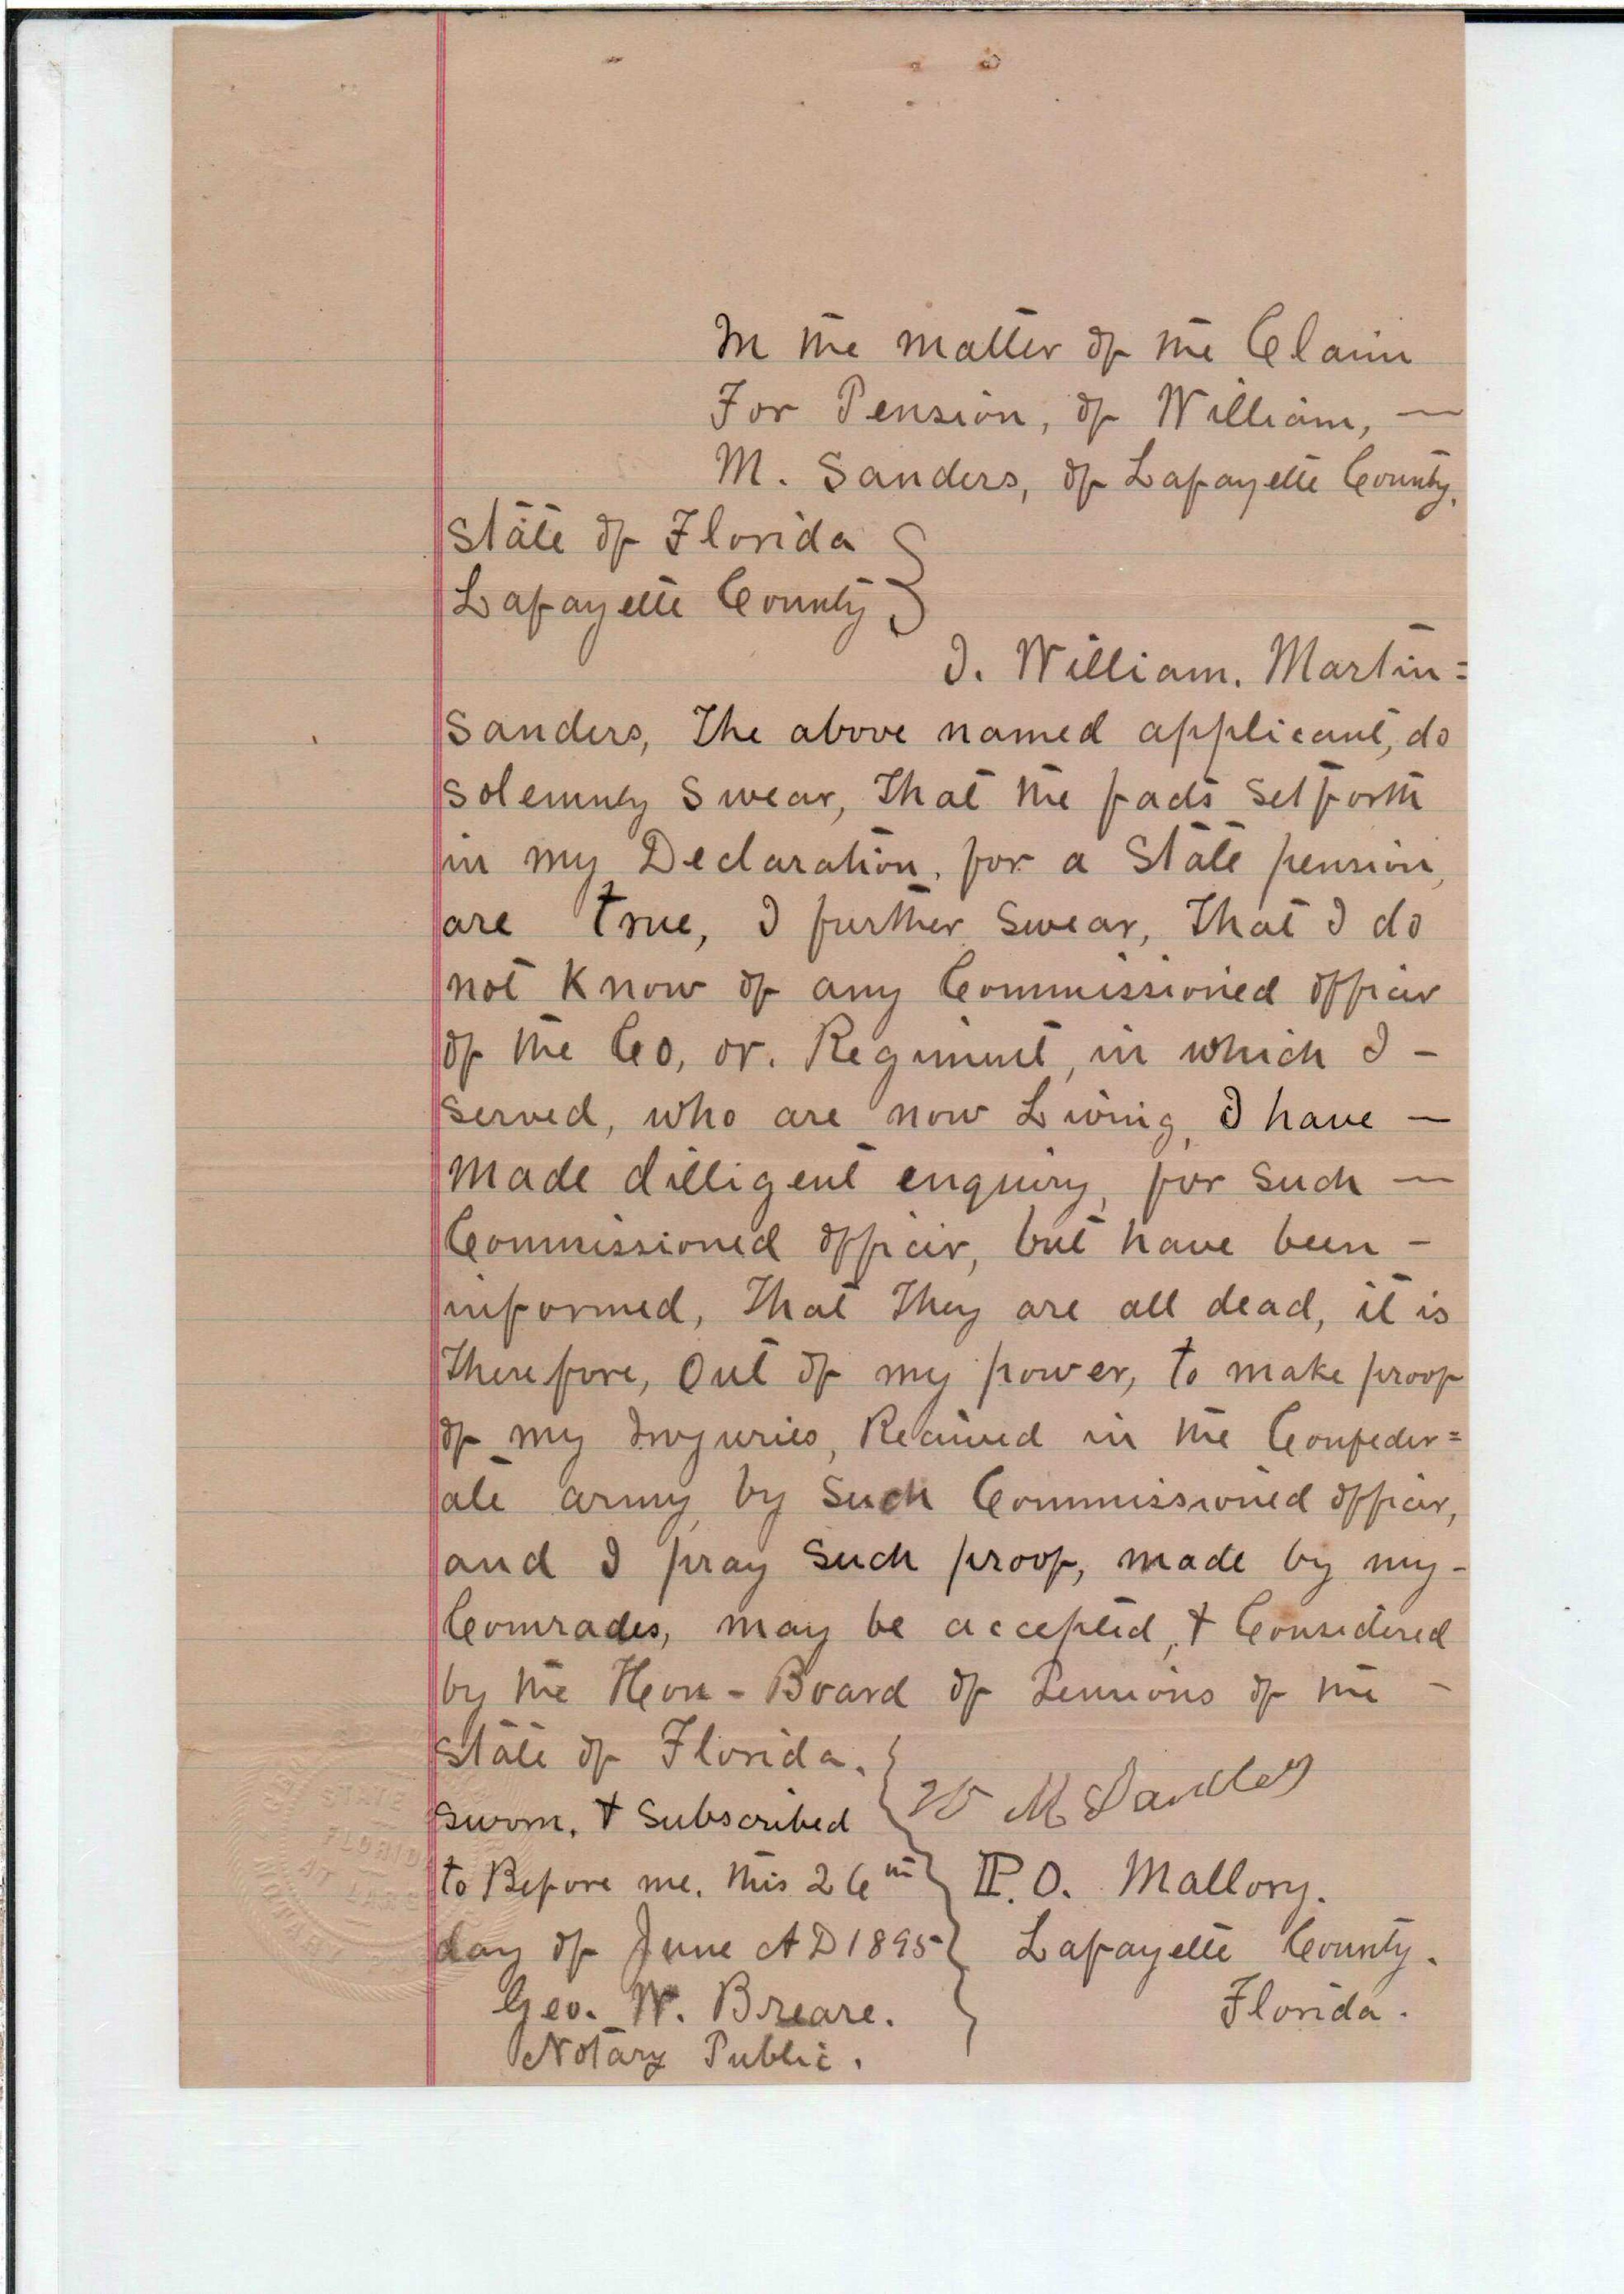 In the matter of the Claim
For Pension, of William, —
M. Sanders, of Lafayette County.
State of Florida }
Lafayette County }
I. William. Martin=
Sanders, The above named applicant, do
solemnly swear, That the facts set forth
in my Declaration, for a State pension,
are true, I further swear, That I do
not Know of any Commissioned officer
of the Co, or. Regiment, in which I –
served, who are now Living, I have —
made dilligent enquiry, for such —
Commissioned officer, but have been –
informed, That They are all dead, it is
Therefore, Out of my power, to make proof
of my Injuries, Received in the Confeder=
ate army, by such Commissioned officer,
and I pray such proof, made by my –
Comrades, may be accepted, & Considered
by the Hon – Board of Pensions of the –
State of Florida.
W M Sanders
Sworn, & Subscribed
to Before me, this 26th
day of June AD 1895
Geo. W. Breare.
Notary Public.
P. O. Mallory.
Lafayette County.
Florida.
STATE
FLORIDA
AT LARGE
NOTARY